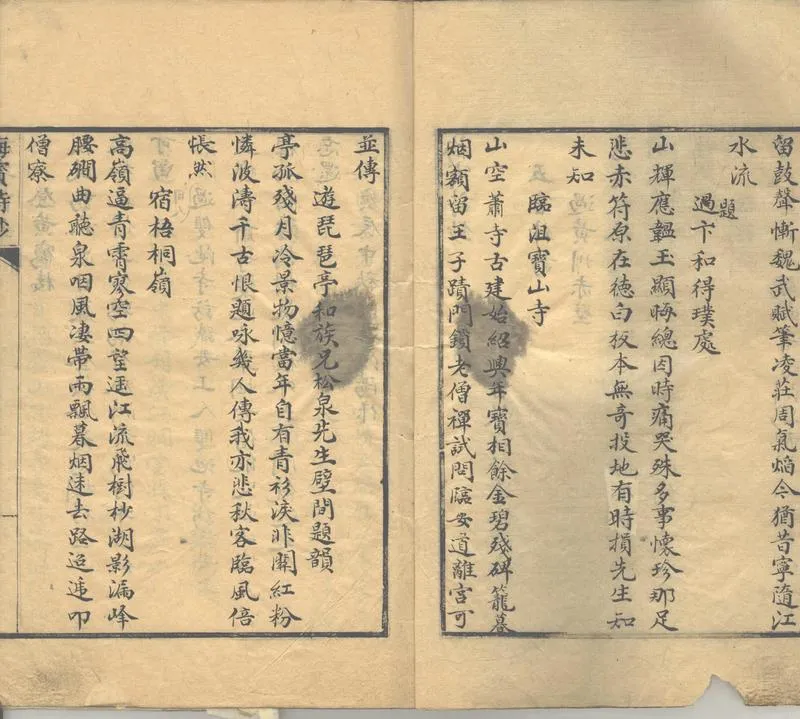 留鼓聲慚魏武賦筆凌莊周氣焰今猶昔寧隨江
水流
題過卞和得璞處
山輝應韞玉顯晦總因時痛哭殊多事懷珍那足
悲赤符原在德白板本無奇投地有時損先生知
未知
臨沮寶山寺
山空蕭寺古建始紹興年寶相餘金碧殘碑籠暮
烟額留王子蹟門鎖老僧禪試問臨安道離宮可
並傳
遊琵琶亭和族兄松泉先生壁間題韻
亭孤殘月冷景物憶當年自有青衫淚非關紅粉
憐波濤千古恨題咏幾人傳我亦悲秋客臨風倍
悵然
宿梧桐嶺
高嶺逼青霄寥空四望遥江流飛樹杪湖影漏峰
腰磵曲聽泉咽風淒帶雨飄暮烟迷去路迢遞叩
僧寮